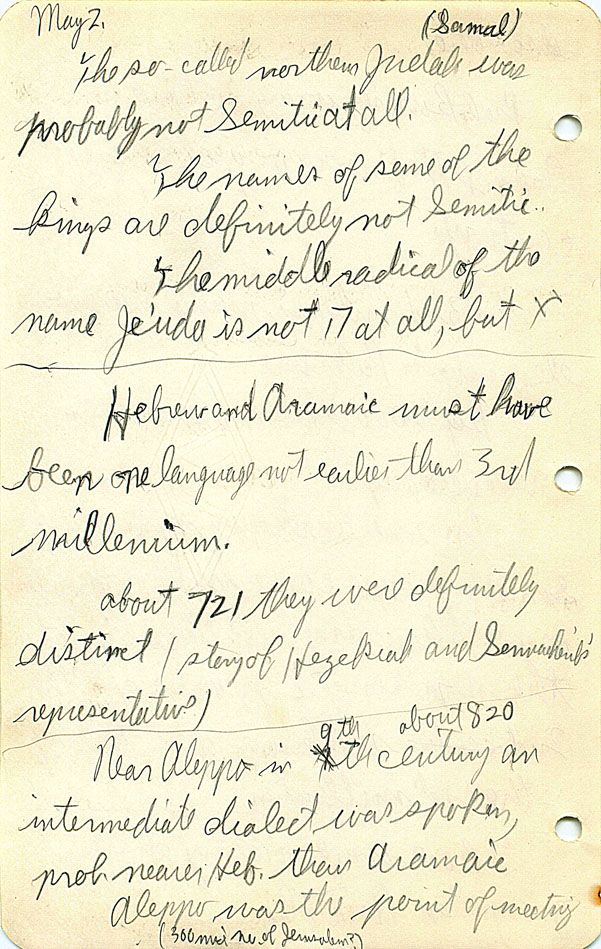 May 2. (Samal)
The so-called northern Judah was
probably not Semitic at all.
The names of some of the
kings are definitely not Semitic.
The middle radical of the
name Je'uda is not ה at all, but א
Hebrew and Aramaic must have
been one language not earlier than 3rd
millenium.
about 721 they were definitely
distinct (story of Hezekiah and Sennacherib's
representative)
about 820
Near Aleppo in 9th century an
intermediate dialect was spoken,
prob. nearer Heb. than Aramaic
Aleppo was the point of meeting
(300 mi no. of Jerusalem?)